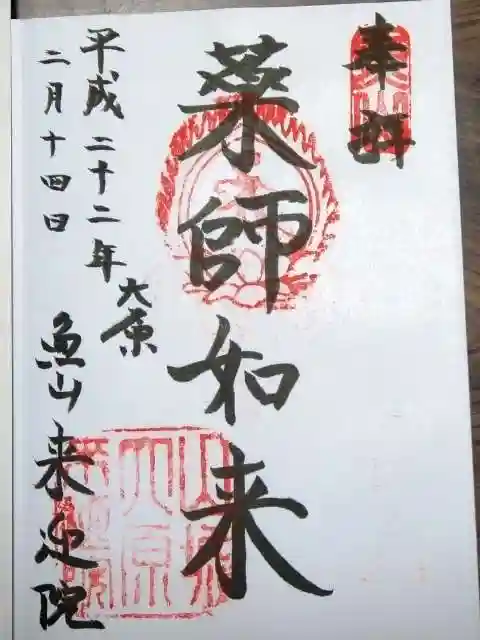 奉拝
薬師如来
大原
平成二十二年
二月十四日
魚山来迎院